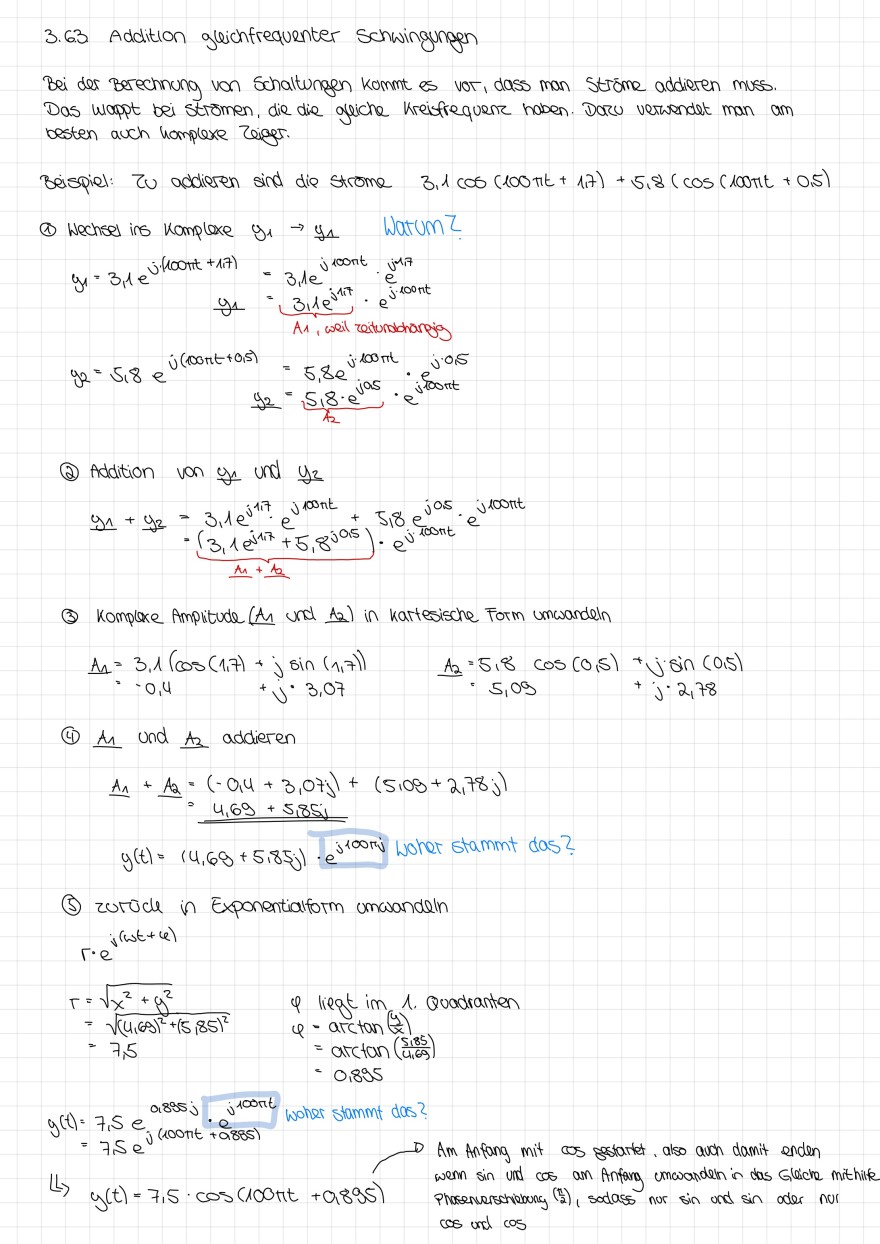 3.63 Addition gleichfrequenter Schwingungen
Bei der Berechnung von Schaltungen kommt es vor, dass man Ströme addieren muss.
Das klappt bei Strömen, die die gleiche Kreisfrequenz haben. Dazu verwendet man am
besten auch komplexe Zeiger.
Beispiel: Zu addieren sind die Ströme 3,1 cos (100πt + 1,7) + 5,8 (cos (100πt + 0,5)
① Wechsel ins Komplexe y1 → y1 Warum?
y1 = 3,1 e^j·(100πt + 1,7) = 3,1e^j·100πt · e^j·1,7
y1 = 3,1e^j1,7 · e^j·100πt
A1, weil zeitunabhängig
y2 = 5,8 e^j(100πt + 0,5) = 5,8e^j·100πt · e^j·0,5
y2 = 5,8·e^j0,5 · e^j100πt
A2
② Addition von y1 und y2
y1 + y2 = 3,1e^j1,7 · e^j100πt + 5,8 e^j0,5 · e^j100πt
= (3,1e^j1,7 + 5,8^j0,5) · e^j·100πt
A1 + A2
③ Komplexe Amplitude (A1 und A2) in kartesische Form umwandeln
A1 = 3,1 (cos (1,7) + j sin (1,7)) A2 = 5,8 cos (0,5) + j·sin (0,5)
= -0,4 + j· 3,07 = 5,09 + j· 2,78
④ A1 und A2 addieren
A1 + A2 = (-0,4 + 3,07j) + (5,09 + 2,78j)
= 4,69 + 5,85j
y(t) = (4,69 + 5,85j) · e^j100πj Woher stammt das?
⑤ Zurück in Exponentialform umwandeln
r·e^j(ωt + φ)
r = √x² + y² φ liegt im 1. Quadranten
= √(4,69)² + (5,85)² φ = arctan (y/x)
= 7,5 = arctan (5,85/4,69)
= 0,895
y(t) = 7,5 e^0,895j · e^j100πt Woher stammt das?
= 7,5e^j(100πt + 0,895)
↳ y(t) = 7,5 · cos (100πt + 0,895)
Am Anfang mit cos gestartet, also auch damit enden
wenn sin und cos am Anfang umwandeln in das Gleiche mithilfe
Phasenverschiebung (π/2), sodass nur sin und sin oder nur
cos und cos